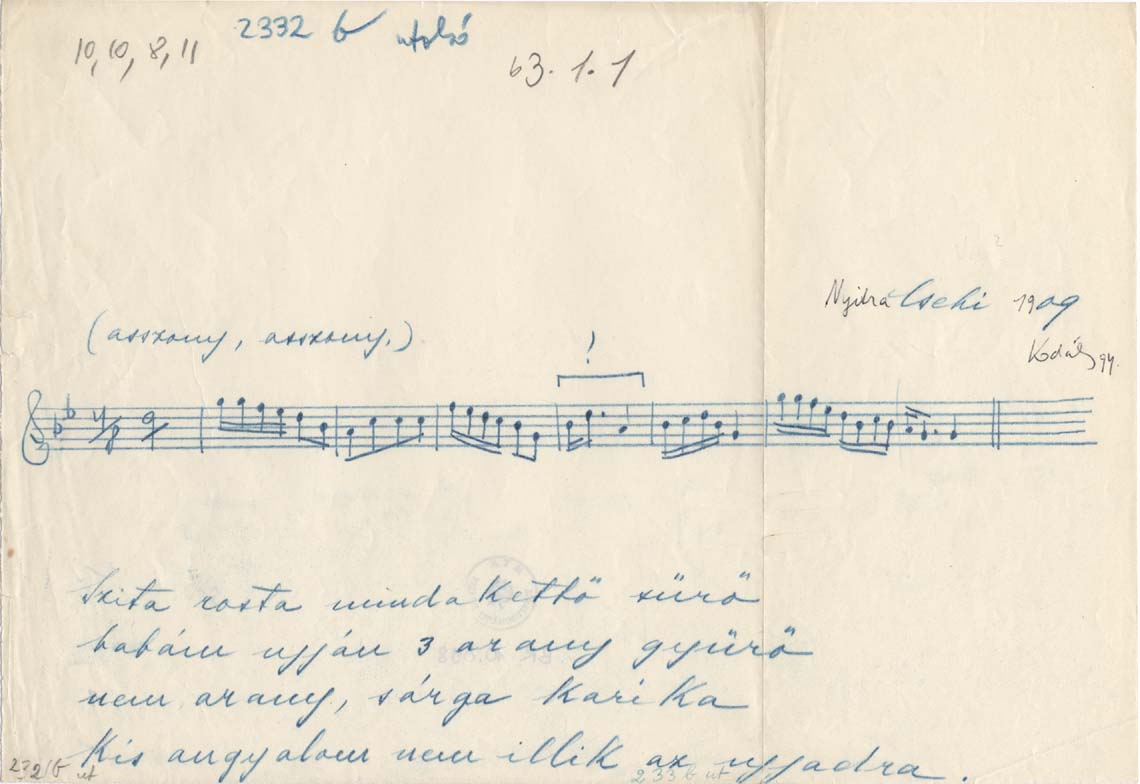 10, 10, 8, 11
2332 b utolsó
63. 1. 1
Nyitra Csehi 1909
Kodály gy.
(asszony, asszony,)
!
Szita rosta mindakettő sürü
babám ujján 3 arany gyürü
nem arany, sárga karika
Kis angyalom nem illik az ujjadra.
233 b ut